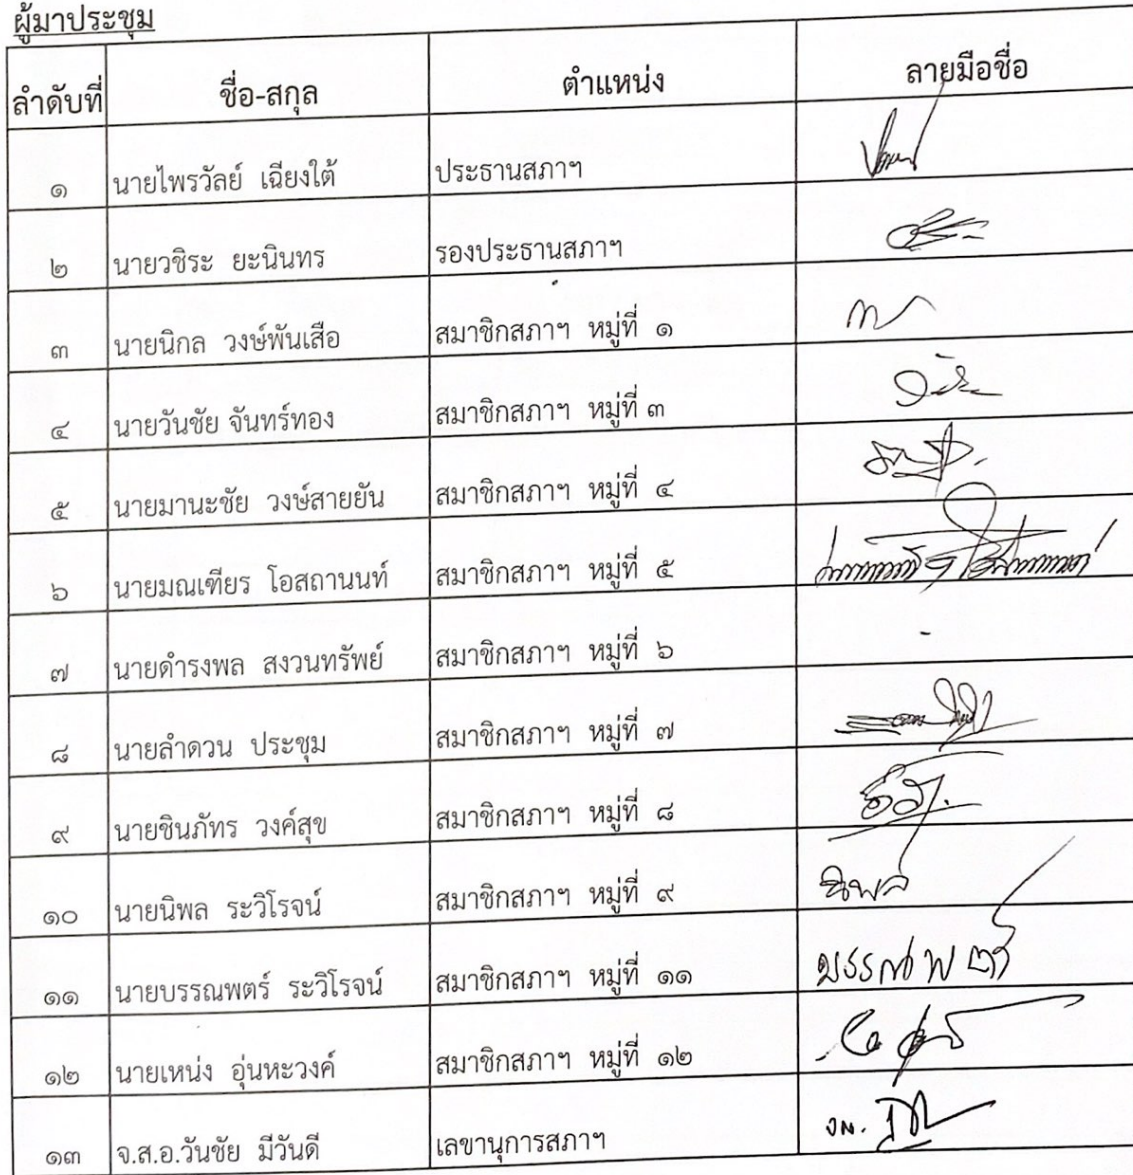 ผู้มาประชุม
ลำดับที่ ชื่อ-สกุล ตำแหน่ง ลายมือชื่อ
๑ นายไพรวัลย์ เฉียงใต้ ประธานสภาฯ
๒ นายวชิระ ยะนินทร รองประธานสภาฯ
๓ นายนิกล วงษ์พันเสือ สมาชิกสภาฯ หมู่ที่ ๑
๔ นายวันชัย จันทร์ทอง สมาชิกสภาฯ หมู่ที่ ๓
๕ นายมานะชัย วงษ์สายยัน สมาชิกสภาฯ หมู่ที่ ๔
๖ นายมณเฑียร โอสถานนท์ สมาชิกสภาฯ หมู่ที่ ๕
๗ นายดำรงพล สงวนทรัพย์ สมาชิกสภาฯ หมู่ที่ ๖ -
๘ นายลำดวน ประชุม สมาชิกสภาฯ หมู่ที่ ๗
๙ นายชินภัทร วงค์สุข สมาชิกสภาฯ หมู่ที่ ๘
๑๐ นายนิพล ระวิโรจน์ สมาชิกสภาฯ หมู่ที่ ๙ นิพล
๑๑ นายบรรณพตร์ ระวิโรจน์ สมาชิกสภาฯ หมู่ที่ ๑๑ บรรณพตร์
๑๒ นายเหน่ง อุ่นหะวงค์ สมาชิกสภาฯ หมู่ที่ ๑๒
๑๓ จ.ส.อ.วันชัย มีวันดี เลขานุการสภาฯ